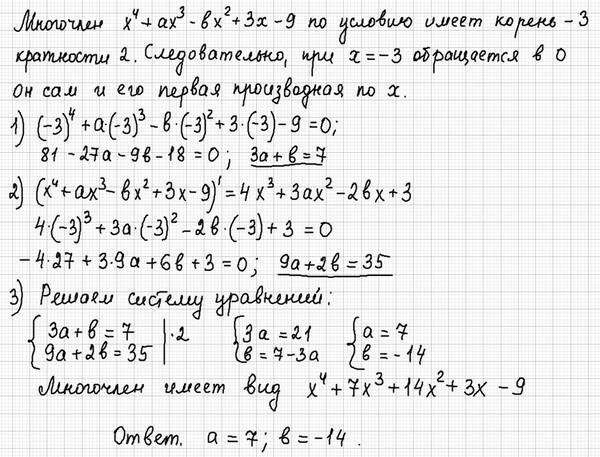 Многочлен x⁴ + ax³ - bx² + 3x - 9 по условию имеет корень -3
кратности 2. Следовательно, при x = -3 обращается в 0
он сам и его первая производная по x.
1) (-3)⁴ + a·(-3)³ - b·(-3)² + 3·(-3) - 9 = 0;
81 - 27a - 9b - 18 = 0; 3a + b = 7
2) (x⁴ + ax³ - bx² + 3x - 9)' = 4x³ + 3ax² - 2bx + 3
4·(-3)³ + 3a·(-3)² - 2b·(-3) + 3 = 0
-4·27 + 3·9a + 6b + 3 = 0; 9a + 2b = 35
3) Решаем систему уравнений:
{3a + b = 7 |·2 {3a = 21 {a = 7
{9a + 2b = 35 | {b = 7 - 3a {b = -14
Многочлен имеет вид x⁴ + 7x³ + 14x² + 3x - 9
Ответ. a = 7; b = -14.